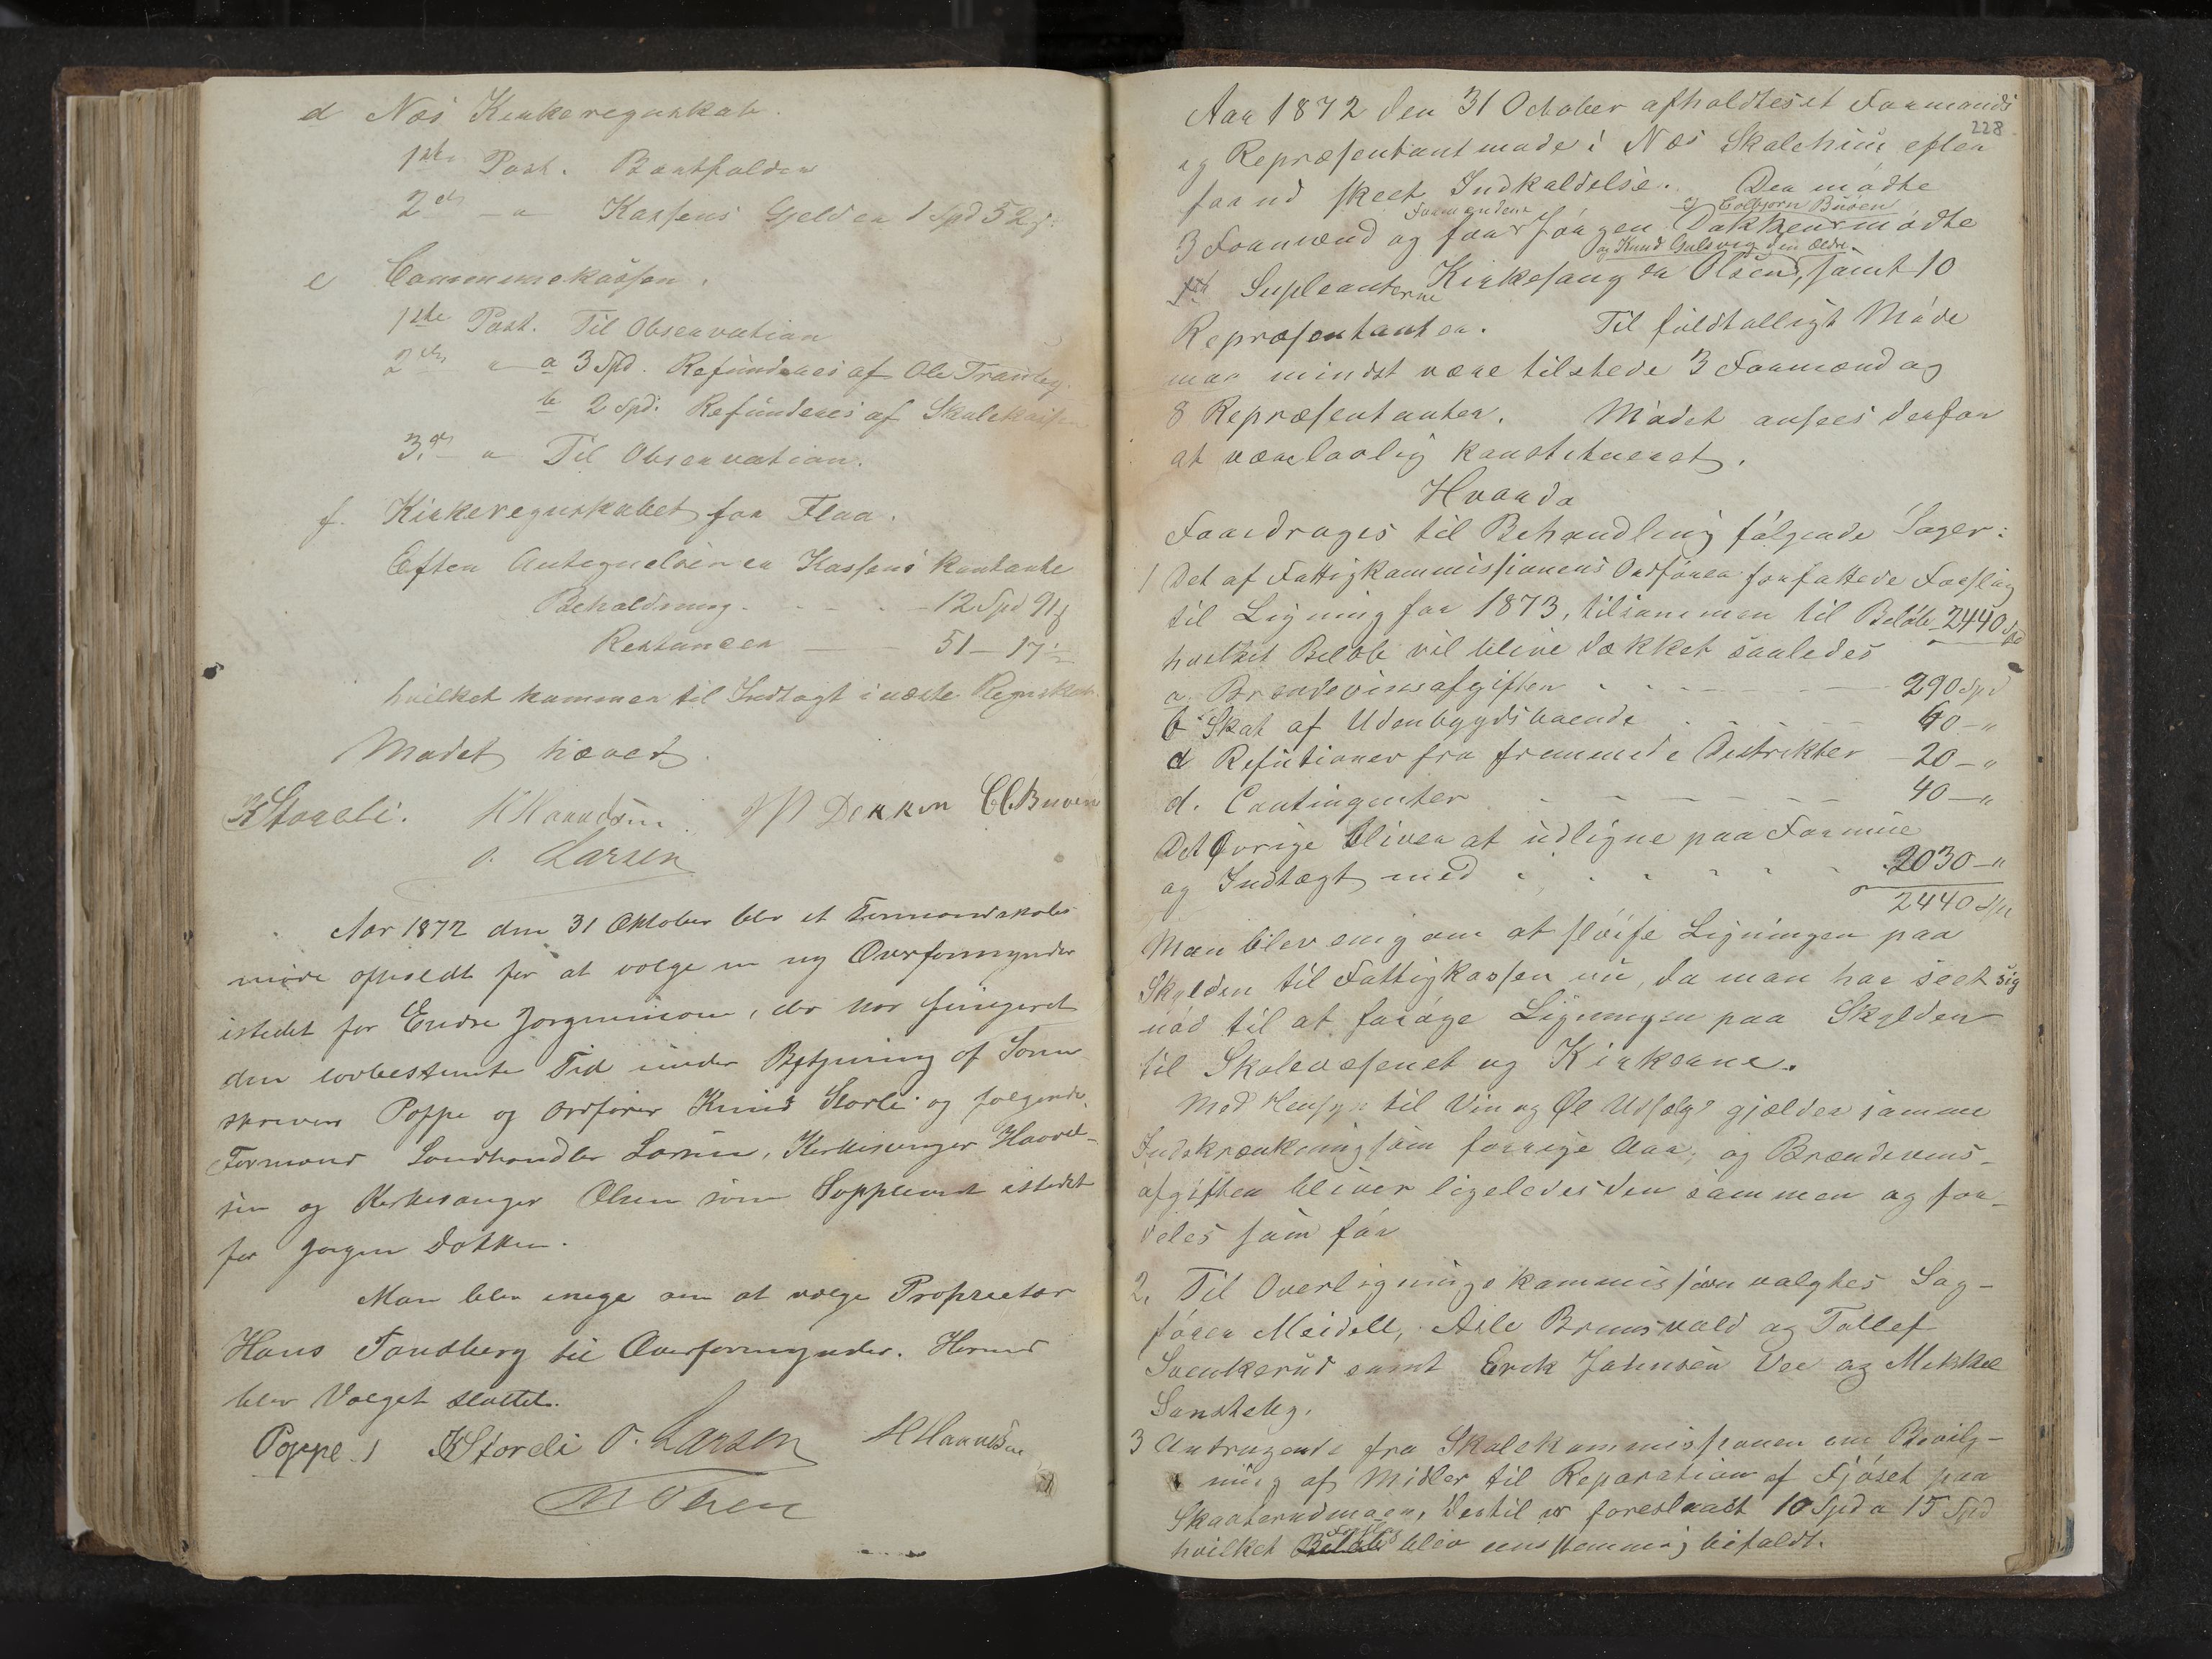 d Næs Kirkeregnskab.
1ste Post. Bortfalder
2den — " — Kassens Gjeld er 1 Spd 52 ß.
e Communekassen.
1ste Post. Til Observation
2den " a 3 Spd. Refunderes af Ole Tranby.
b 2 Spd. Refunderes af Skolekassen
3die " Til Observation.
f. Kirkeregnskabet for Flaa.
Efter Antegnelsen er Kassens kontante
Beholdning. - - - - 12 Spd 91 ß
Restancer — - 51 — 17 ½
hvilket kommer til Indtægt i næste Regnskab.
Mødet hævet.
K Storeli. H Haavelsen. JP Dokken CC. Bruen
O. Larsen
Aar 1872 den 31 Oktober blev et Formandskabs
møde afholdt for at vælge en ny Overformynder
istedet for Endre Jørgensmoen, der har fungeret
den lovbestemte Tid under Bestyrning af Soren
skriver Poppe og Ordfører Knud Storli og følgende
Formænd Landhandler Larsen, Kirkesanger Haavel-
sen og Kirkesanger Olsen som Suppleant istedet
for Jørgen Dokken.
Man blev enige om at vælge Proprietær
Hans Sandberg til Overformynder. Hermed
blev Valget sluttet.
Poppe. K Storeli O. Larsen H Haavelsen
N Olsen
228
Aar 1872 den 31 October afholdtes et Formands
og Repræsentantmøde i Næs Skolehuus efter
forud skeet Indkaldelse. Der mødte
Formændene og Colbjørn Bruen
3 Formænd og for Jørgen Dokken mødte
og Knud Gulsvig den ældre
Supleanterne Kirkesanger Olsen, samt 10
Repræsentanter. Til fuldtalligt Møde
maa mindst være tilstede 3 Formænd og
8 Repræsentanter. Mødet ansees derfor
at være lovlig konstitueret.
Hvorda
Foredroges til Behandling følgende Sager:
1 Det af Fattigkommissionens Ordfører forfattede Forslag
til Ligning for 1873, tilsammen til Beløb 2440 Spd
hvilket Beløb vil blive dækket saaledes
a. Brændevinsafgiften - - - — 290 Spd
b Skat af Udenbygdsboende - - - - 60 — "
c Refutioner fra fremmede Destrikter — 20 — "
d. Contingenter - - - - 40 — "
Det Øvrige bliver at udligne paa Formue
og Indtægt med - - - - - 2030 — "
2440 Spd
Man blev enig om at sløife Ligningen paa
Skylden til Fattigkassen nu, da man har seet sig
nød til at forøge Ligningen paa Skylden
til Skolevæsenet og Kirkerne.
Med Hensyn til Vin og Øl Udsalg gjælder samme
Indskrænkning som forrige Aar, og Brændevins-
afgiften bliver ligeledes den sammen og for-
deles som før
2. Til Overligningskommission valgtes Sag-
fører Meidell, Asle Bromsvald og Tollef
Svenkerud samt Erik Johnsen Vee og Mikkel
Sansteby.
3 Andragende fra Skolekommissionen om Bevilg-
ning af Midler til Reparation af Fjøset paa
Skaaterudmoen, dertil er foreslaaet 10 Spd a 15 Spd
Forslag
hvilket Beløb blev eenstemmig bifaldt.